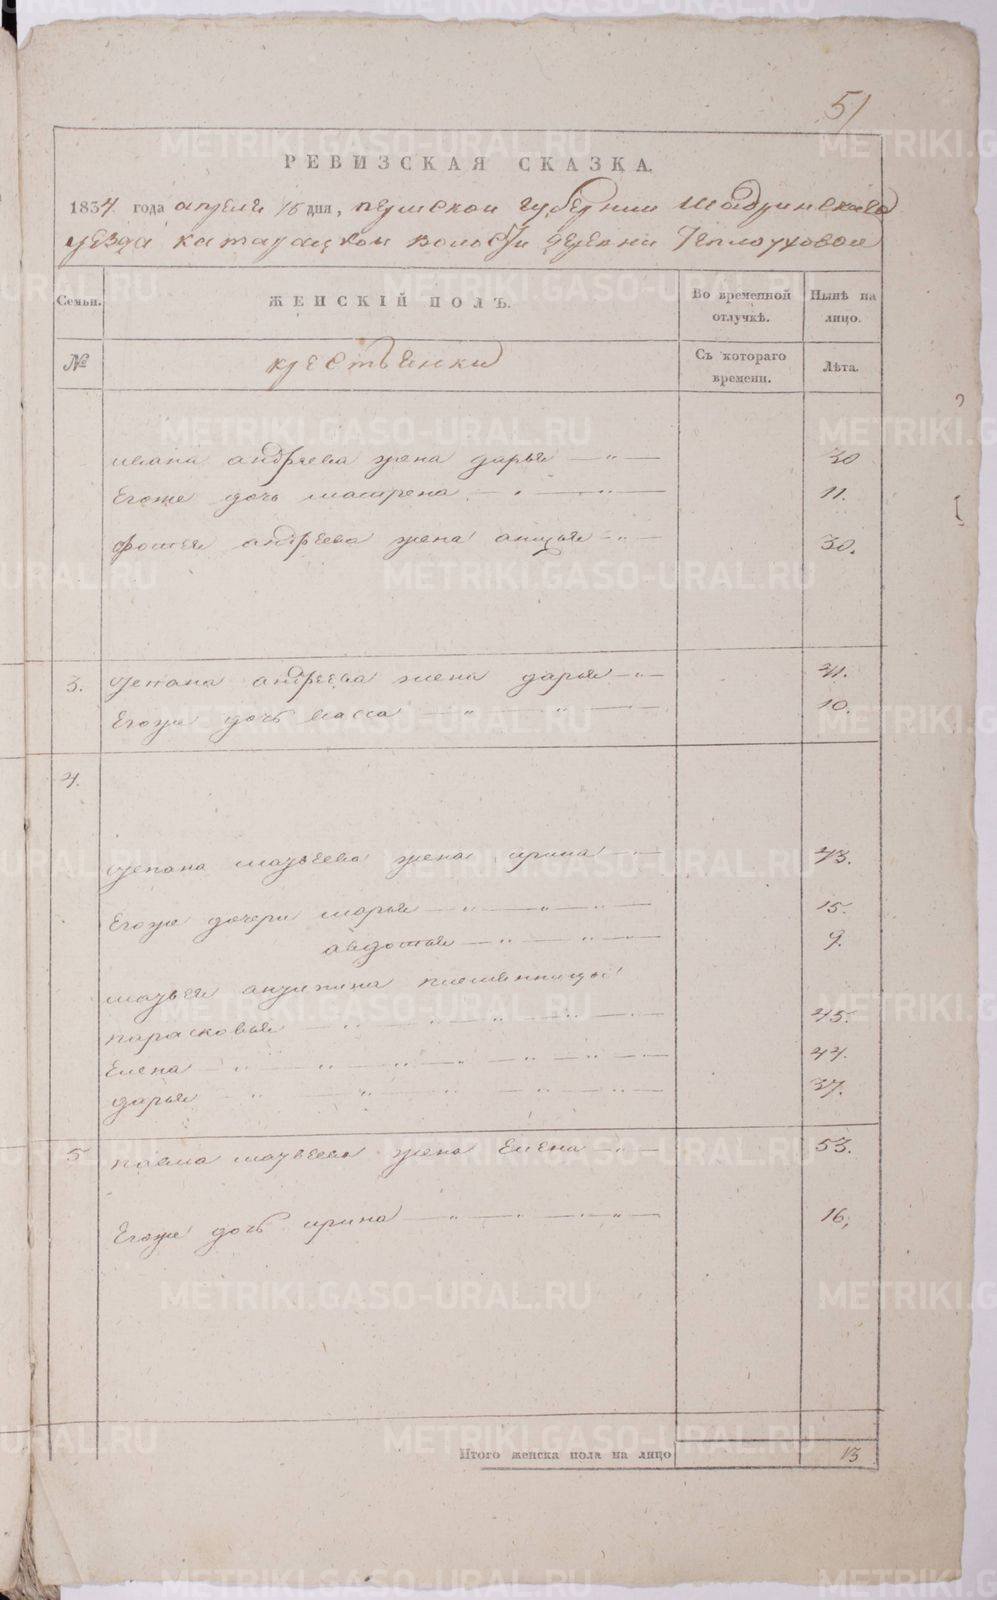 51
РЕВИЗСКАЯ СКАЗКА.
1834 года апреля 15 дня, пермской губернии Шадринскаго
уезда катарацкой волости деревни Теплоуховой
Семьи. ЖЕНСКІЙ ПОЛЪ. Во временной отлучкѣ. Нынѣ на лицо.
№ крестьянки Съ котораго времени. Лѣта.
ивана андреева жена дарья 30
Егоже дочь матрена 11.
фотея андреева жена 30.
3. степана андреева жена дарья 41.
Егоже дочь васса 10.
4.
степана матвеева жена ирина 43.
Егоже дочери марья 15.
авдотья 9.
матвея племянницы
парасковья 45.
Елена 44.
дарья 37.
5 павла матвеева жена Елена 53.
Егоже дочь ирина 16,
Итого женска пола на лицо 13
METRIKI.GASO-URAL.RU